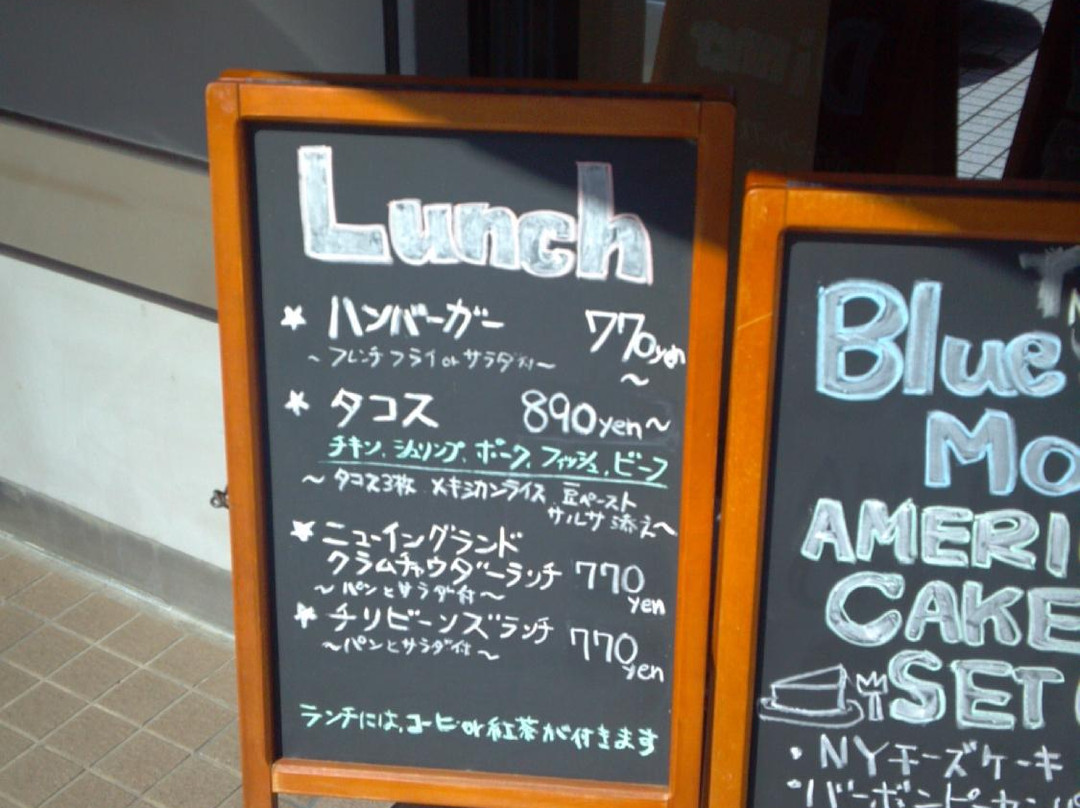 Lunch
★ ハンバーガー 770yen～
～フレンチフライorサラダ付～
★ タコス 890yen～
チキン、シュリンプ、ポーク、フィッシュ、ビーフ
～タコス3枚 メキシカンライス 豆ペースト
サルサ添え～
★ ニューイングランド
クラムチャウダーランチ 770yen
～パンとサラダ付～
★ チリビーンズランチ 770yen
～パンとサラダ付～
ランチには、コーヒーor紅茶が付きます
Blue
Mo
AMERI
CAKE
SET
・NYチーズケーキ